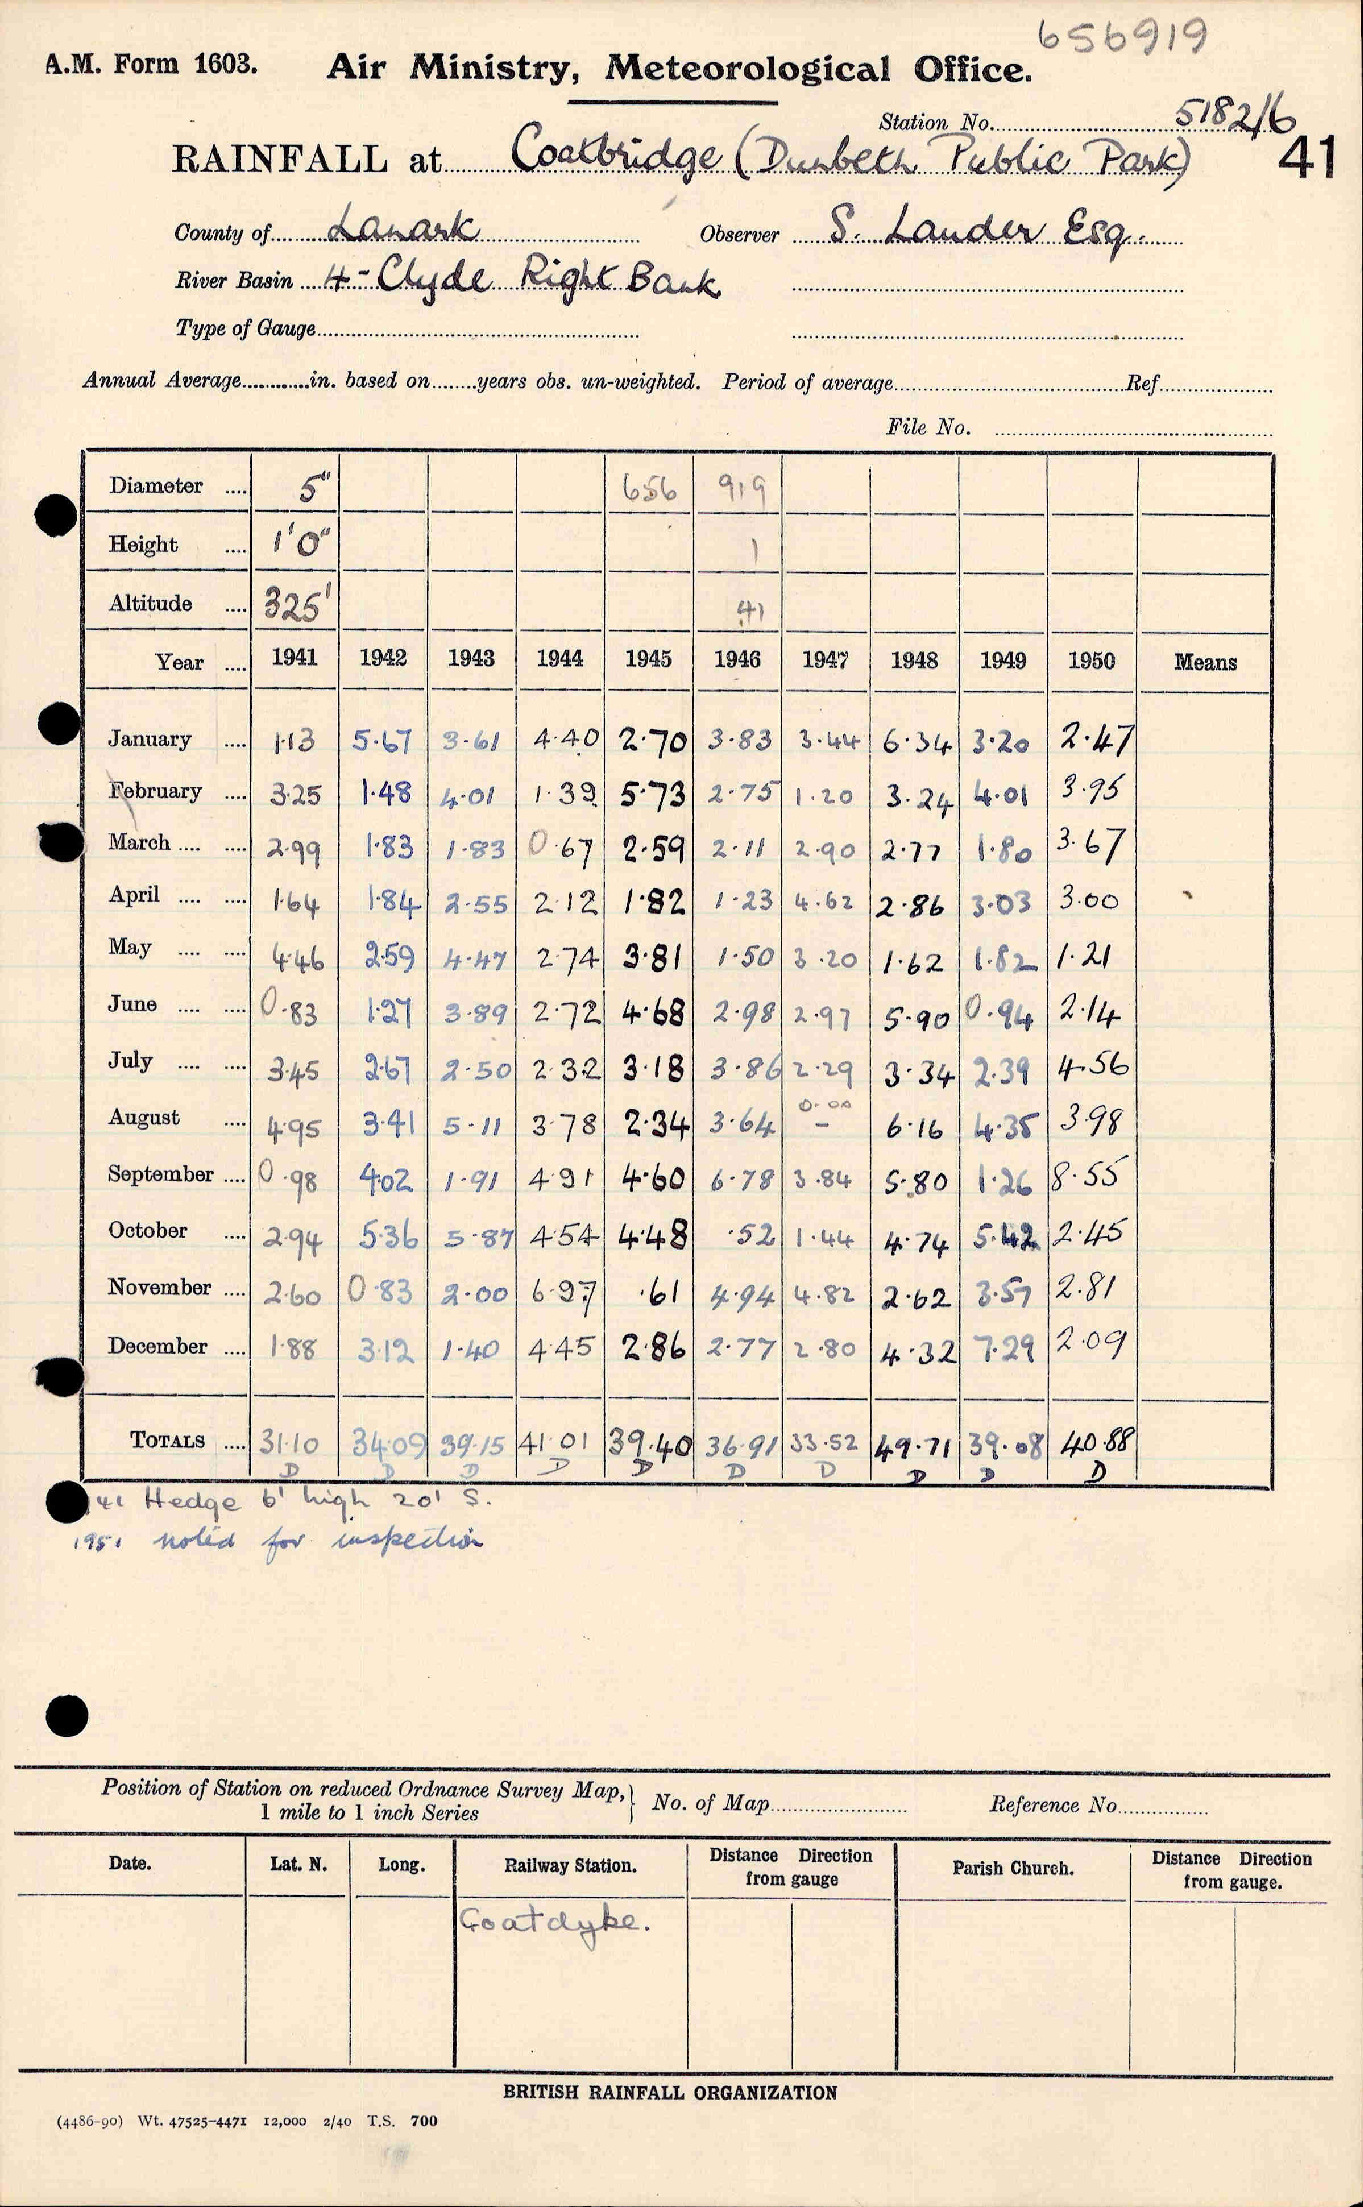 656919
A.M. Form 1603. Air Ministry, Meteorological Office.
Station No. 5182/6
RAINFALL at Coatbridge (Dunbeth Public Park) 41
County of Lanark Observer S. Lauder Esq.
River Basin 4 - Clyde Right Bank
Type of Gauge
Annual Average in. based on years obs. un-weighted. Period of average Ref.
File No.
Diameter .... 5" 656 919
Height .... 1'0" 1
Altitude .... 325' 41
Year .... 1941 1942 1943 1944 1945 1946 1947 1948 1949 1950 Means
January .... 1.13 5.67 3.61 4.40 2.70 3.83 3.44 6.34 3.20 2.47
February .... 3.25 1.48 4.01 1.39 5.73 2.75 1.20 3.24 4.01 3.95
March .... .... 2.99 1.83 1.83 0.67 2.59 2.11 2.90 2.77 1.80 3.67
April .... .... 1.64 1.84 2.55 2.12 1.82 1.23 4.62 2.86 3.03 3.00
May .... .... 4.46 2.59 4.47 2.74 3.81 1.50 3.20 1.62 1.82 1.21
June .... .... 0.83 1.27 3.89 2.72 4.68 2.98 2.97 5.90 0.94 2.14
July .... .... 3.45 2.67 2.50 2.32 3.18 3.86 2.29 3.34 2.39 4.56
0.00
August .... 4.95 3.41 5.11 3.78 2.34 3.64 - 6.16 4.35 3.98
September .... 0.98 4.02 1.91 4.91 4.60 6.78 3.84 5.80 1.26 8.55
October .... 2.94 5.36 5.87 4.54 4.48 .52 1.44 4.74 5.42 2.45
November .... 2.60 0.83 2.00 6.97 .61 4.94 4.82 2.62 3.57 2.81
December .... 1.88 3.12 1.40 4.45 2.86 2.77 2.80 4.32 7.29 2.09
TOTALS .... 31.10 34.09 39.15 41.01 39.40 36.91 33.52 49.71 39.08 40.88
D D D D D D D D D D
41 Hedge 6' high 20' S.
1951 noted for inspection
Position of Station on reduced Ordnance Survey Map, } No. of Map Reference No.
1 mile to 1 inch Series
Date. Lat. N. Long. Railway Station. Distance Direction from gauge Parish Church. Distance Direction from gauge.
Coatdyke.
BRITISH RAINFALL ORGANIZATION
(4486-90) Wt. 47525-4471 12,000 2/40 T.S. 700